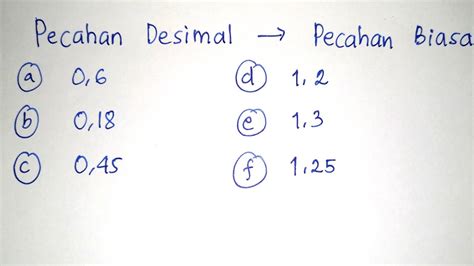 Pecahan Desimal → Pecahan Biasa
a 0,6 d 1,2
b 0,18 e 1,3
c 0,45 f 1,25